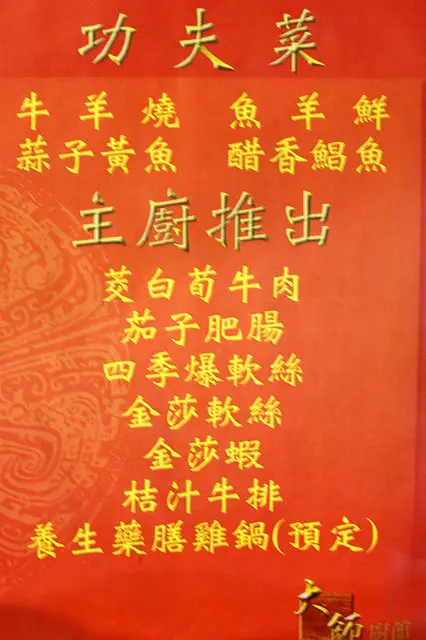 功夫菜
牛羊燒 魚羊鮮
蒜子黃魚 醋香鯧魚
主廚推出
茭白荀牛肉
茄子肥腸
四季爆軟絲
金莎軟絲
金莎蝦
桔汁牛排
養生藥膳雞鍋(預定)
大師
廚館